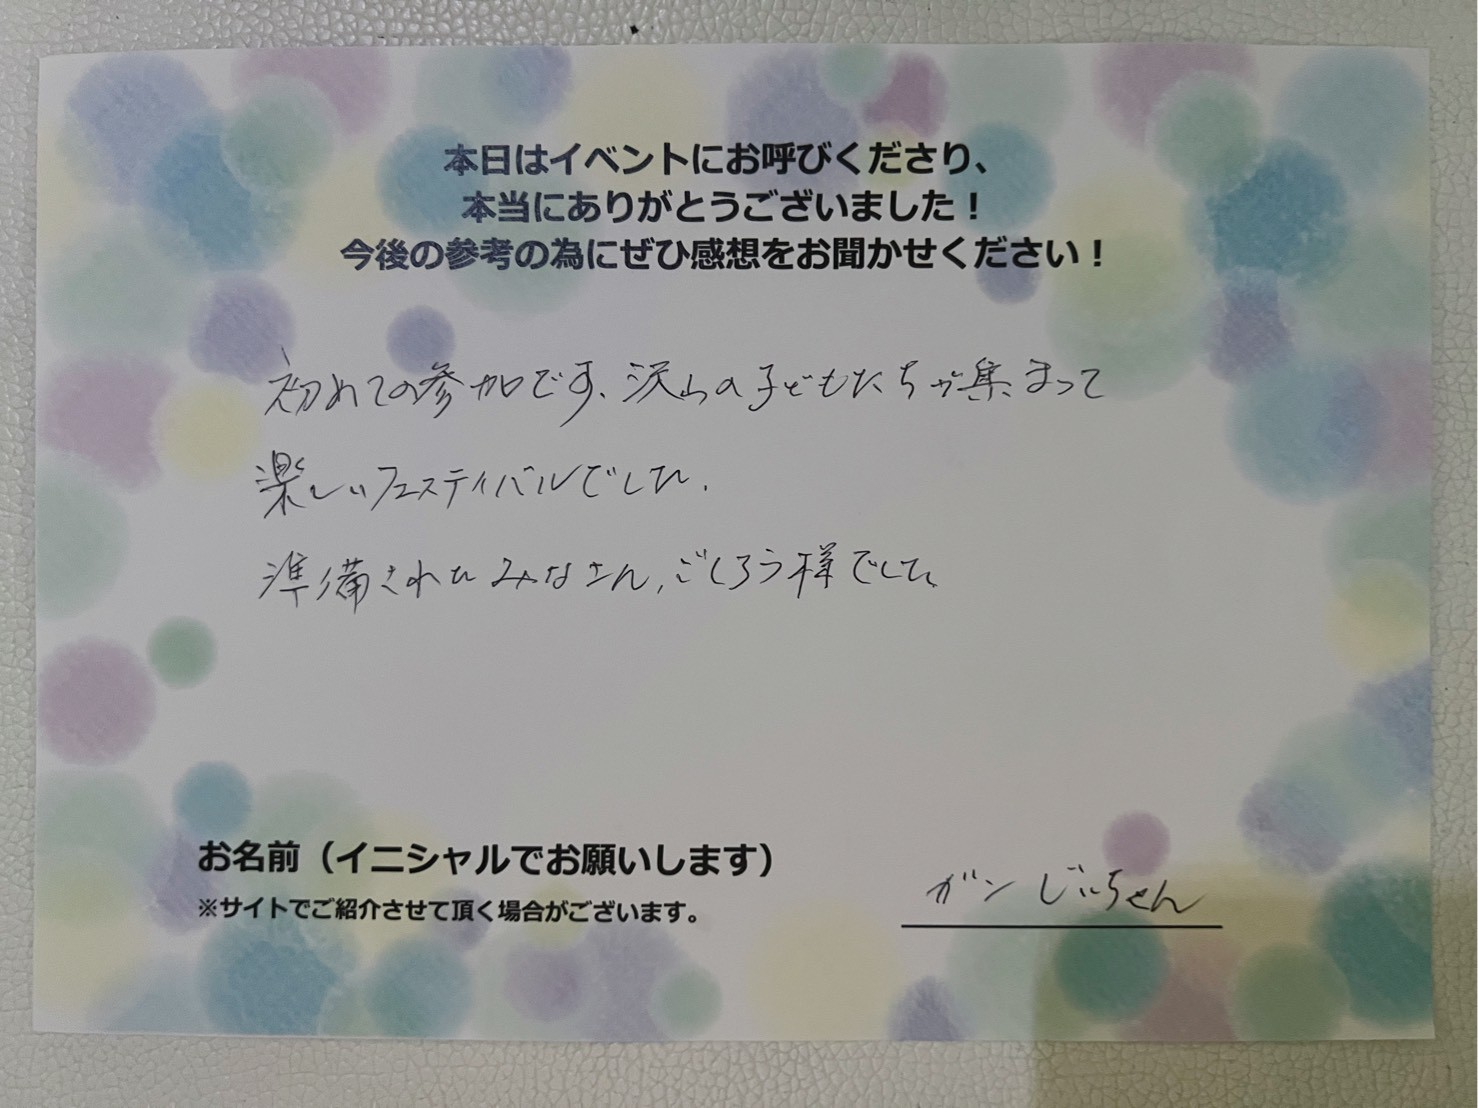 本日はイベントにお呼びくださり、
本当にありがとうございました！
今後の参考の為にぜひ感想をお聞かせください！
初めての参加です、沢山の子どもたちが集まって
楽しいフェスティバルでした.
準備されたみなさん,ごくろう様でした、
お名前（イニシャルでお願いします）
※サイトでご紹介させて頂く場合がございます。
ガンじいちゃん